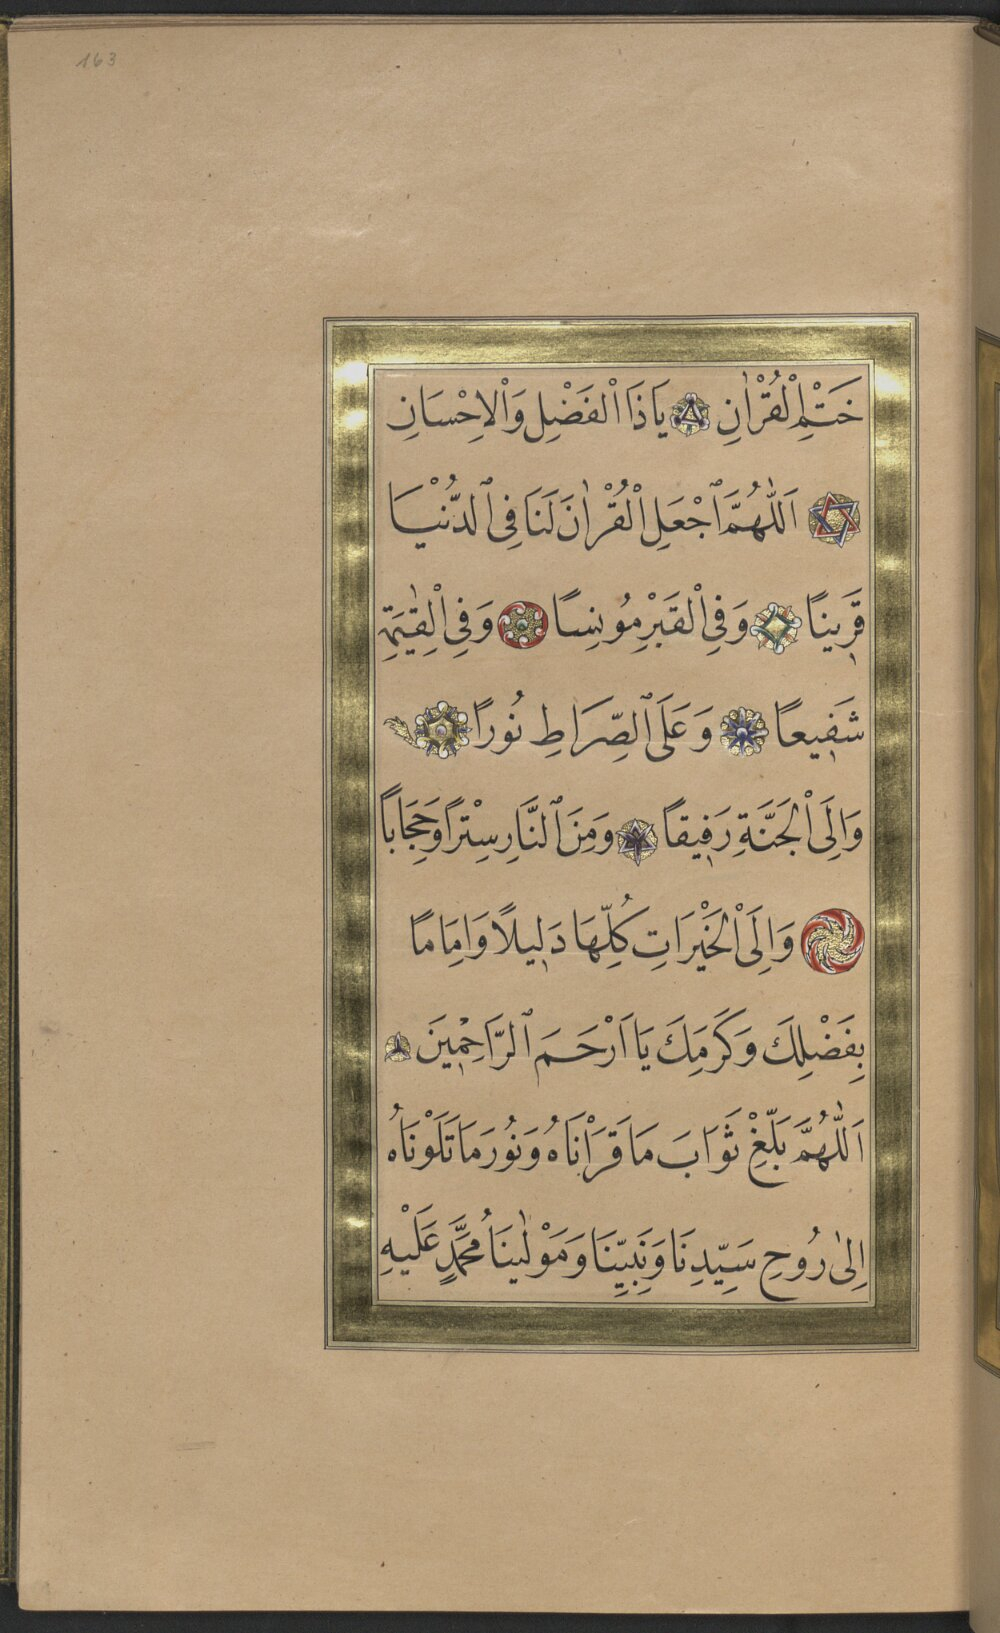 163
خَتْمِ الْقُرْاٰنِ يَاذَا الْفَضْلِ وَالْاِحْسَانِ
اَللّٰهُمَّ اجْعَلِ الْقُرْاٰنَ لَنَا فِى الدُّنْيَا
قَرِينًا وَفِى الْقَبْرِ مُونِسًا وَفِى الْقِيٰمَةِ
شَفِيعًا وَعَلَى الصِّرَاطِ نُورًا
وَاِلَى الْجَنَّةِ رَفِيقًا وَمِنَ النَّارِ سِتْرًا وَحِجَابًا
وَاِلَى الْخَيْرَاتِ كُلِّهَا دَلِيلًا وَاِمَامًا
بِفَضْلِكَ وَكَرَمِكَ يَا اَرْحَمَ الرَّاحِمِينَ
اَللّٰهُمَّ بَلِّغْ ثَوَابَ مَا قَرَأْنَاهُ وَنُورَ مَا تَلَوْنَاهُ
اِلٰى رُوحِ سَيِّدِنَا وَنَبِيِّنَا وَمَوْلٰينَا مُحَمَّدٍ عَلَيْهِ